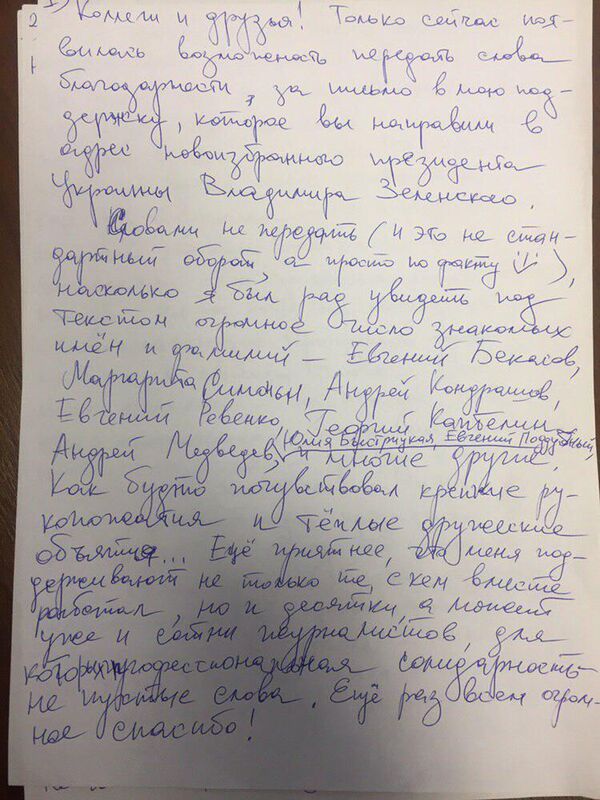 1) Коллеги и друзья! Только сейчас поя-
вилась возможность передать слова
благодарности, за письмо в мою под-
держку, которое вы направили в
адрес новоизбранного президента
Украины Владимира Зеленского.
Словами не передать (и это не стан-
дартный оборот, а просто по факту :)),
насколько я был рад увидеть под
текстом огромное число знакомых
имён и фамилий — Евгений Бекасов,
Маргарита Симоньян, Андрей Кондрашов,
Евгений Ревенко, Георгий Капбелин
Юлия Быстрицкая, Евгений Поддубный,
Андрей Медведев, и многие другие.
Как будто почувствовал крепкие ру-
копожатия и тёплые дружеские
объятия... Ещё приятнее, что меня под-
держивают не только те, с кем вместе
работал, но и десятки, а может
уже и сотни журналистов, для
которых профессиональная солидарность
не пустые слова. Ещё раз всем огром-
ное спасибо!